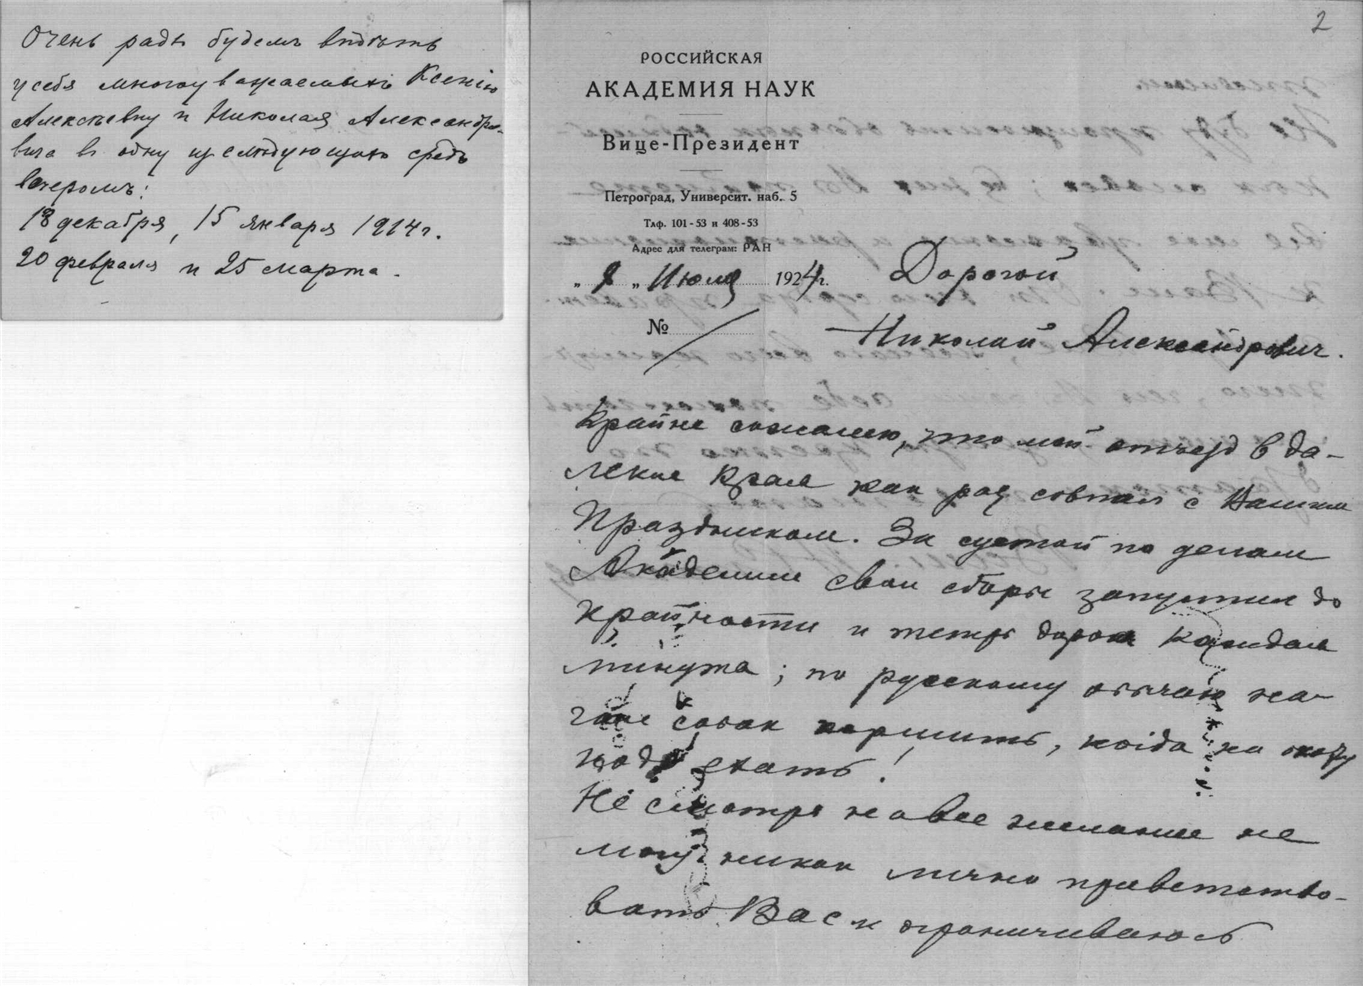 Очень рады будемъ видѣть
у себя многоуважаемыхъ Ксенію
Алексѣевну и Николая Александро-
вича въ одну изъ слѣдующихъ средъ
вечеромъ:
18 декабря, 15 января 1914 г.
20 февраля и 25 марта.
2
РОССИЙСКАЯ
АКАДЕМИЯ НАУК
Вице-Президент
Петроград, Университ. наб. 5
Тлф. 101-53 и 408-53
Адрес для телеграм: РАН
" 8 " Июля 1924 г.
№
Дорогой
Николай Александрович.
Крайне сожалею, что мой отъезд в да-
лекие края как раз совпал с Вашим
Праздником. За суетой по делам
Академии свои сборы запустил до
крайности и теперь дорога каждая
минута; по русскому обычаю на-
чали собак кормить, когда на охоту
надо ехать!
Не смотря на все желание не
могу никак лично приветство-
вать Вас и ограничиваюсь